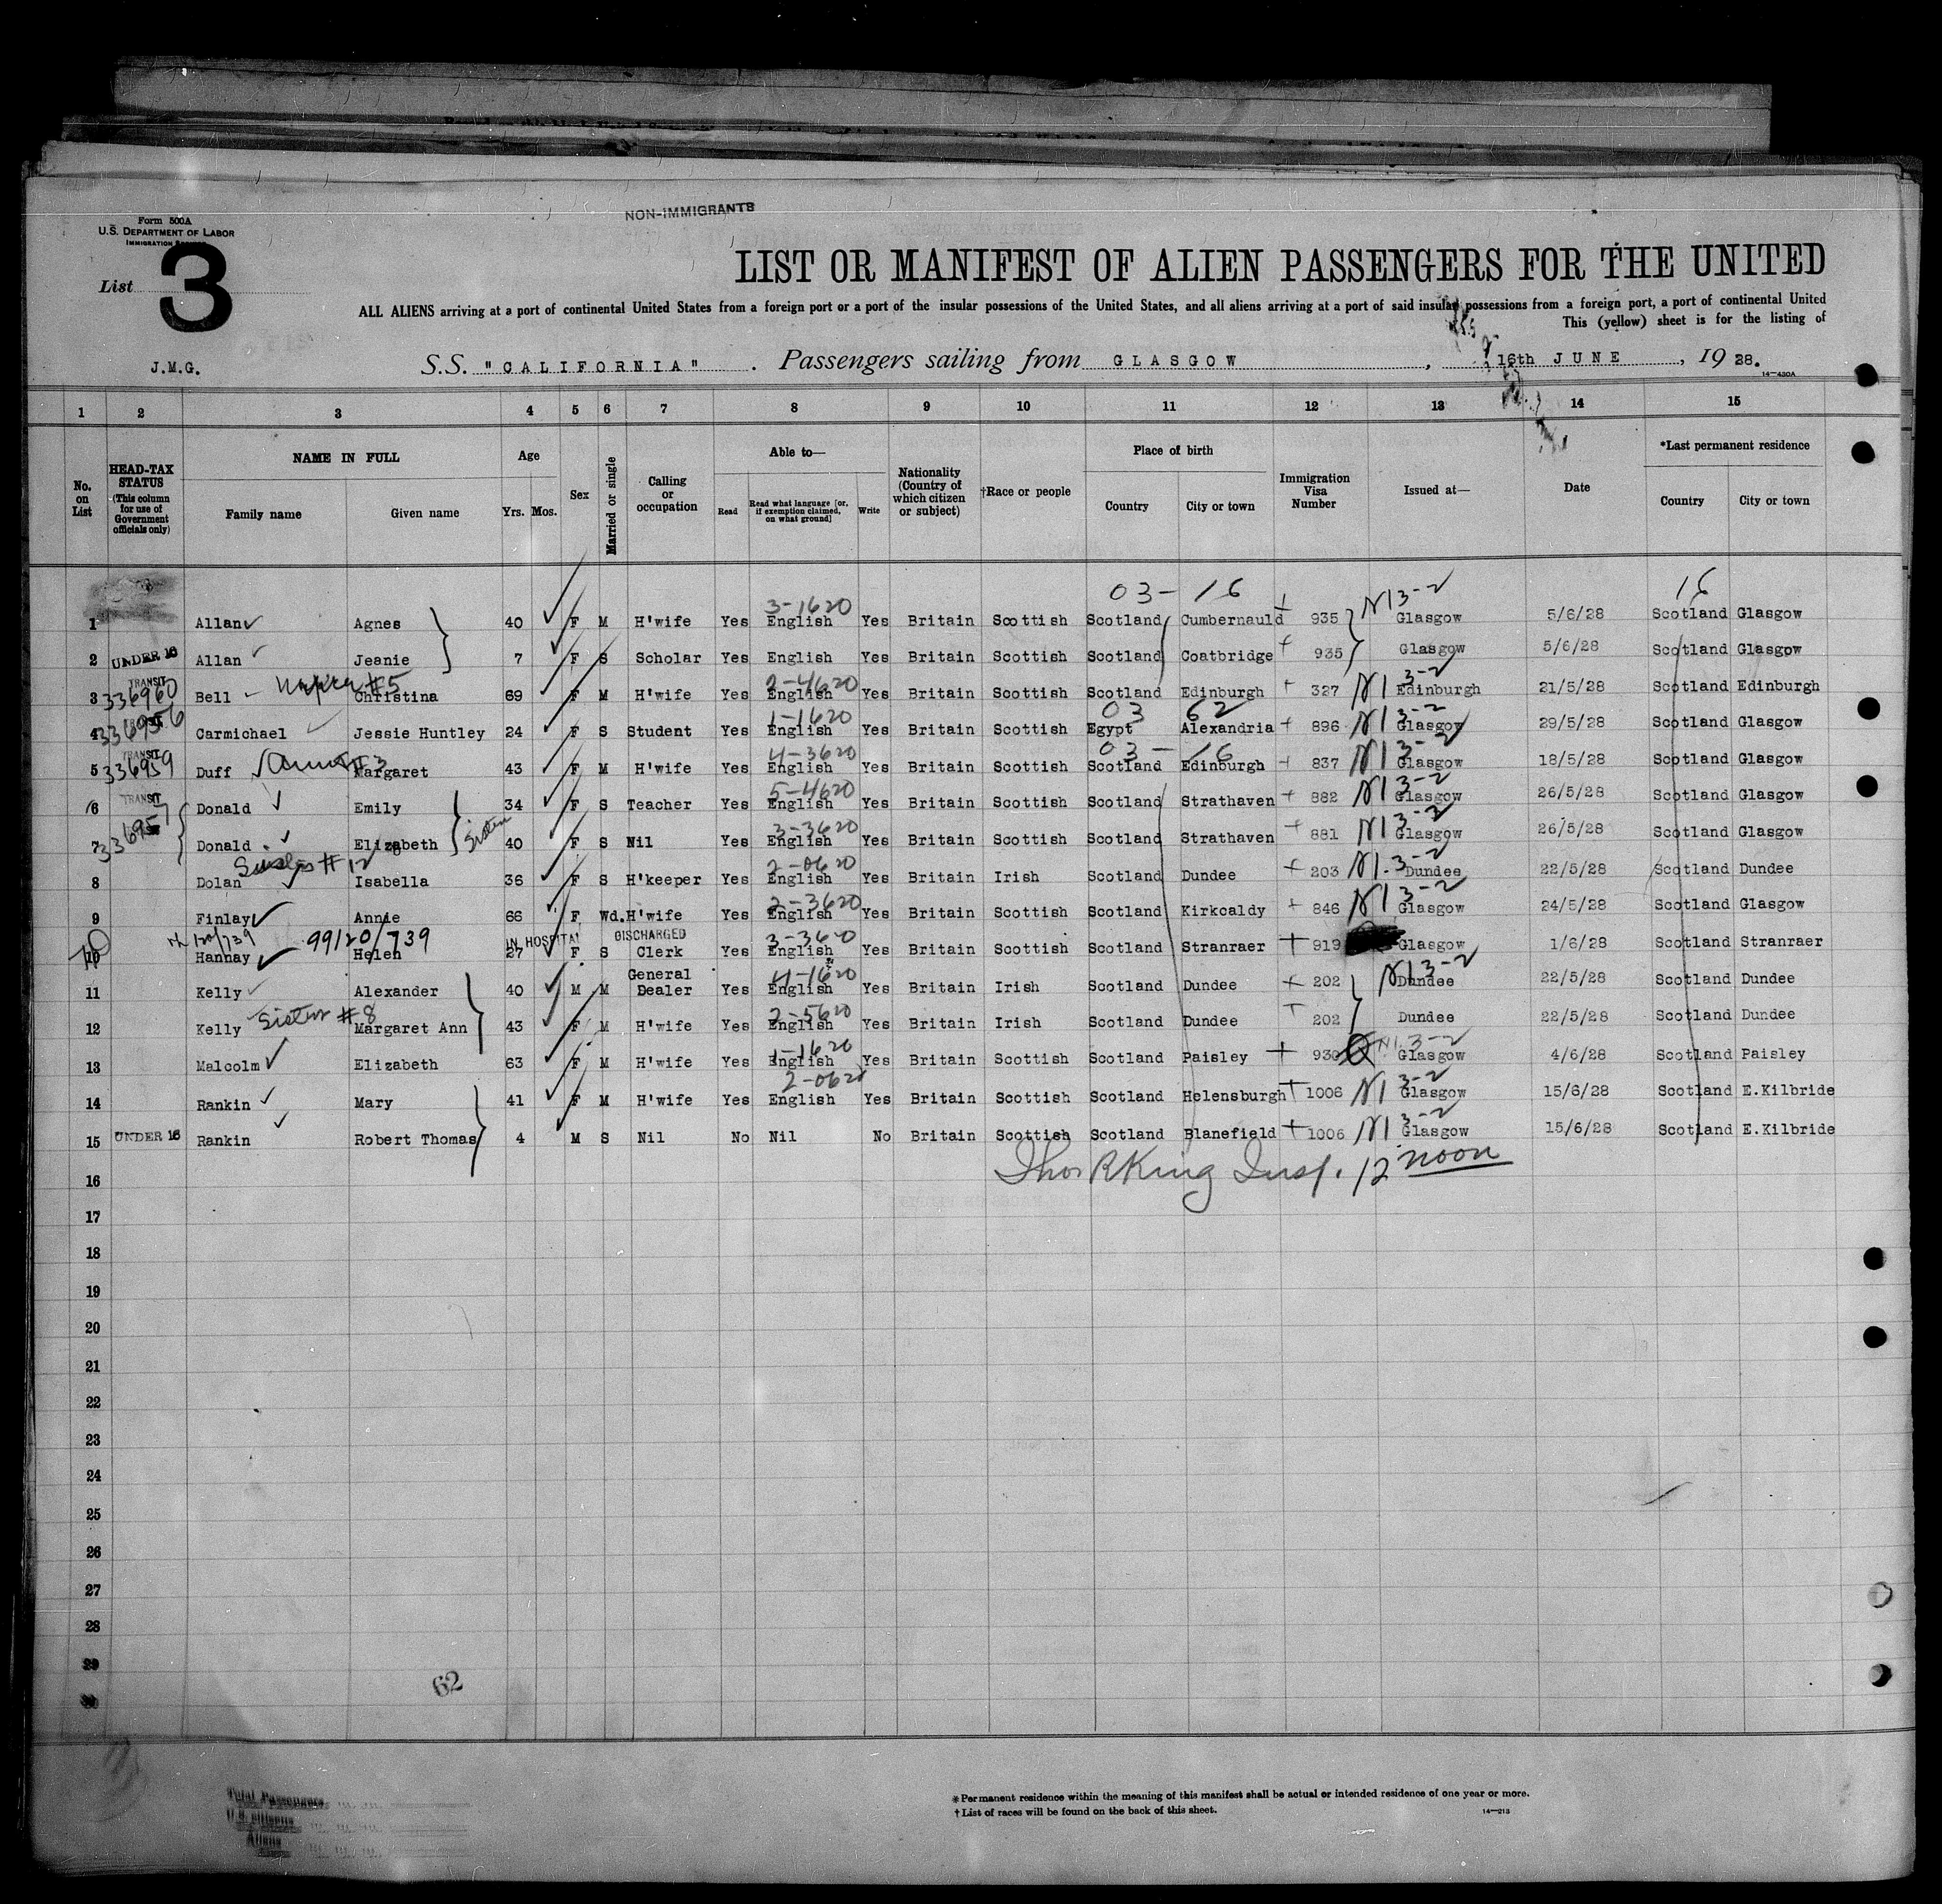 NON-IMMIGRANTS
Form 500A
U.S. DEPARTMENT OF LABOR
IMMIGRATION SERVICE
List 3
LIST OR MANIFEST OF ALIEN PASSENGERS FOR THE UNITED
ALL ALIENS arriving at a port of continental United States from a foreign port or a port of the insular possessions of the United States, and all aliens arriving at a port of said insular possessions from a foreign port, a port of continental United
This (yellow) sheet is for the listing of
J.M.G.
S.S. "CALIFORNIA". Passengers sailing from GLASGOW, 16th JUNE, 19 28.
14-430A
1 2 3 4 5 6 7 8 9 10 11 12 13 14 15
No. on List
HEAD-TAX STATUS (This column for use of Government officials only)
NAME IN FULL
Family name Given name
Age
Yrs. Mos.
Sex
Married or single
Calling or occupation
Able to—
Read Read what language [or, if exemption claimed, on what ground] Write
Nationality (Country of which citizen or subject)
†Race or people
Place of birth
Country City or town
Immigration Visa Number
Issued at—
Date
*Last permanent residence
Country City or town
03-16 16
3-1620 N13-2
1 Allan Agnes 40 F M H'wife Yes English Yes Britain Scottish Scotland Cumbernauld 935 Glasgow 5/6/28 Scotland Glasgow
2 UNDER 16 Allan Jeanie 7 F S Scholar Yes English Yes Britain Scottish Scotland Coatbridge 935 Glasgow 5/6/28 Scotland Glasgow
TRANSIT #5 2-4620 N1 3-2
3 336960 Bell Christina 69 F M H'wife Yes English Yes Britain Scottish Scotland Edinburgh 327 Edinburgh 21/5/28 Scotland Edinburgh
1-1620 03 62 N1 3-2
4 336956 Carmichael Jessie Huntley 24 F S Student Yes English Yes Britain Scottish Egypt Alexandria 896 Glasgow 29/5/28 Scotland Glasgow
TRANSIT 4-3620 03-16 N1 3-2
5 336959 Duff Aunt #3 Margaret 43 F M H'wife Yes English Yes Britain Scottish Scotland Edinburgh 837 Glasgow 18/5/28 Scotland Glasgow
TRANSIT 5-4620 N1 3-2
6 Donald Emily 34 F S Teacher Yes English Yes Britain Scottish Scotland Strathaven 882 Glasgow 26/5/28 Scotland Glasgow
3-3620 N1 3-2
7 336957 Donald Elizabeth Sister 40 F S Nil Yes English Yes Britain Scottish Scotland Strathaven 881 Glasgow 26/5/28 Scotland Glasgow
#12 2-0620 N1.3-2
8 Dolan Isabella 36 F S H'keeper Yes English Yes Britain Irish Scotland Dundee 203 Dundee 22/5/28 Scotland Dundee
2-3620 N1 3-2
9 Finlay Annie 66 F Wd. H'wife Yes English Yes Britain Scottish Scotland Kirkcaldy 846 Glasgow 24/5/28 Scotland Glasgow
99120/739 IN HOSPITAL DISCHARGED 3-3620
10 Hannay Helen 27 F S Clerk Yes English Yes Britain Scottish Scotland Stranraer 919 Glasgow 1/6/28 Scotland Stranraer
4-1620 N13-2
11 Kelly Alexander 40 M M General Dealer Yes English Yes Britain Irish Scotland Dundee 202 Dundee 22/5/28 Scotland Dundee
Sister #8 2-5620
12 Kelly Margaret Ann 43 F M H'wife Yes English Yes Britain Irish Scotland Dundee 202 Dundee 22/5/28 Scotland Dundee
1-1620 N1.3-2
13 Malcolm Elizabeth 63 F M H'wife Yes English Yes Britain Scottish Scotland Paisley 930 Glasgow 4/6/28 Scotland Paisley
2-0620 N1 3-2
14 Rankin Mary 41 F M H'wife Yes English Yes Britain Scottish Scotland Helensburgh 1006 Glasgow 15/6/28 Scotland E.Kilbride
N1 3-2
15 UNDER 16 Rankin Robert Thomas 4 M S Nil No Nil No Britain Scottish Scotland Blanefield 1006 Glasgow 15/6/28 Scotland E.Kilbride
Thos R King Insp. 12 noon
16
17
18
19
20
21
22
23
24
25
26
27
28
29
30
62
Total Passengers
U.S. citizens
Aliens
*Permanent residence within the meaning of this manifest shall be actual or intended residence of one year or more.
†List of races will be found on the back of this sheet.
14-213